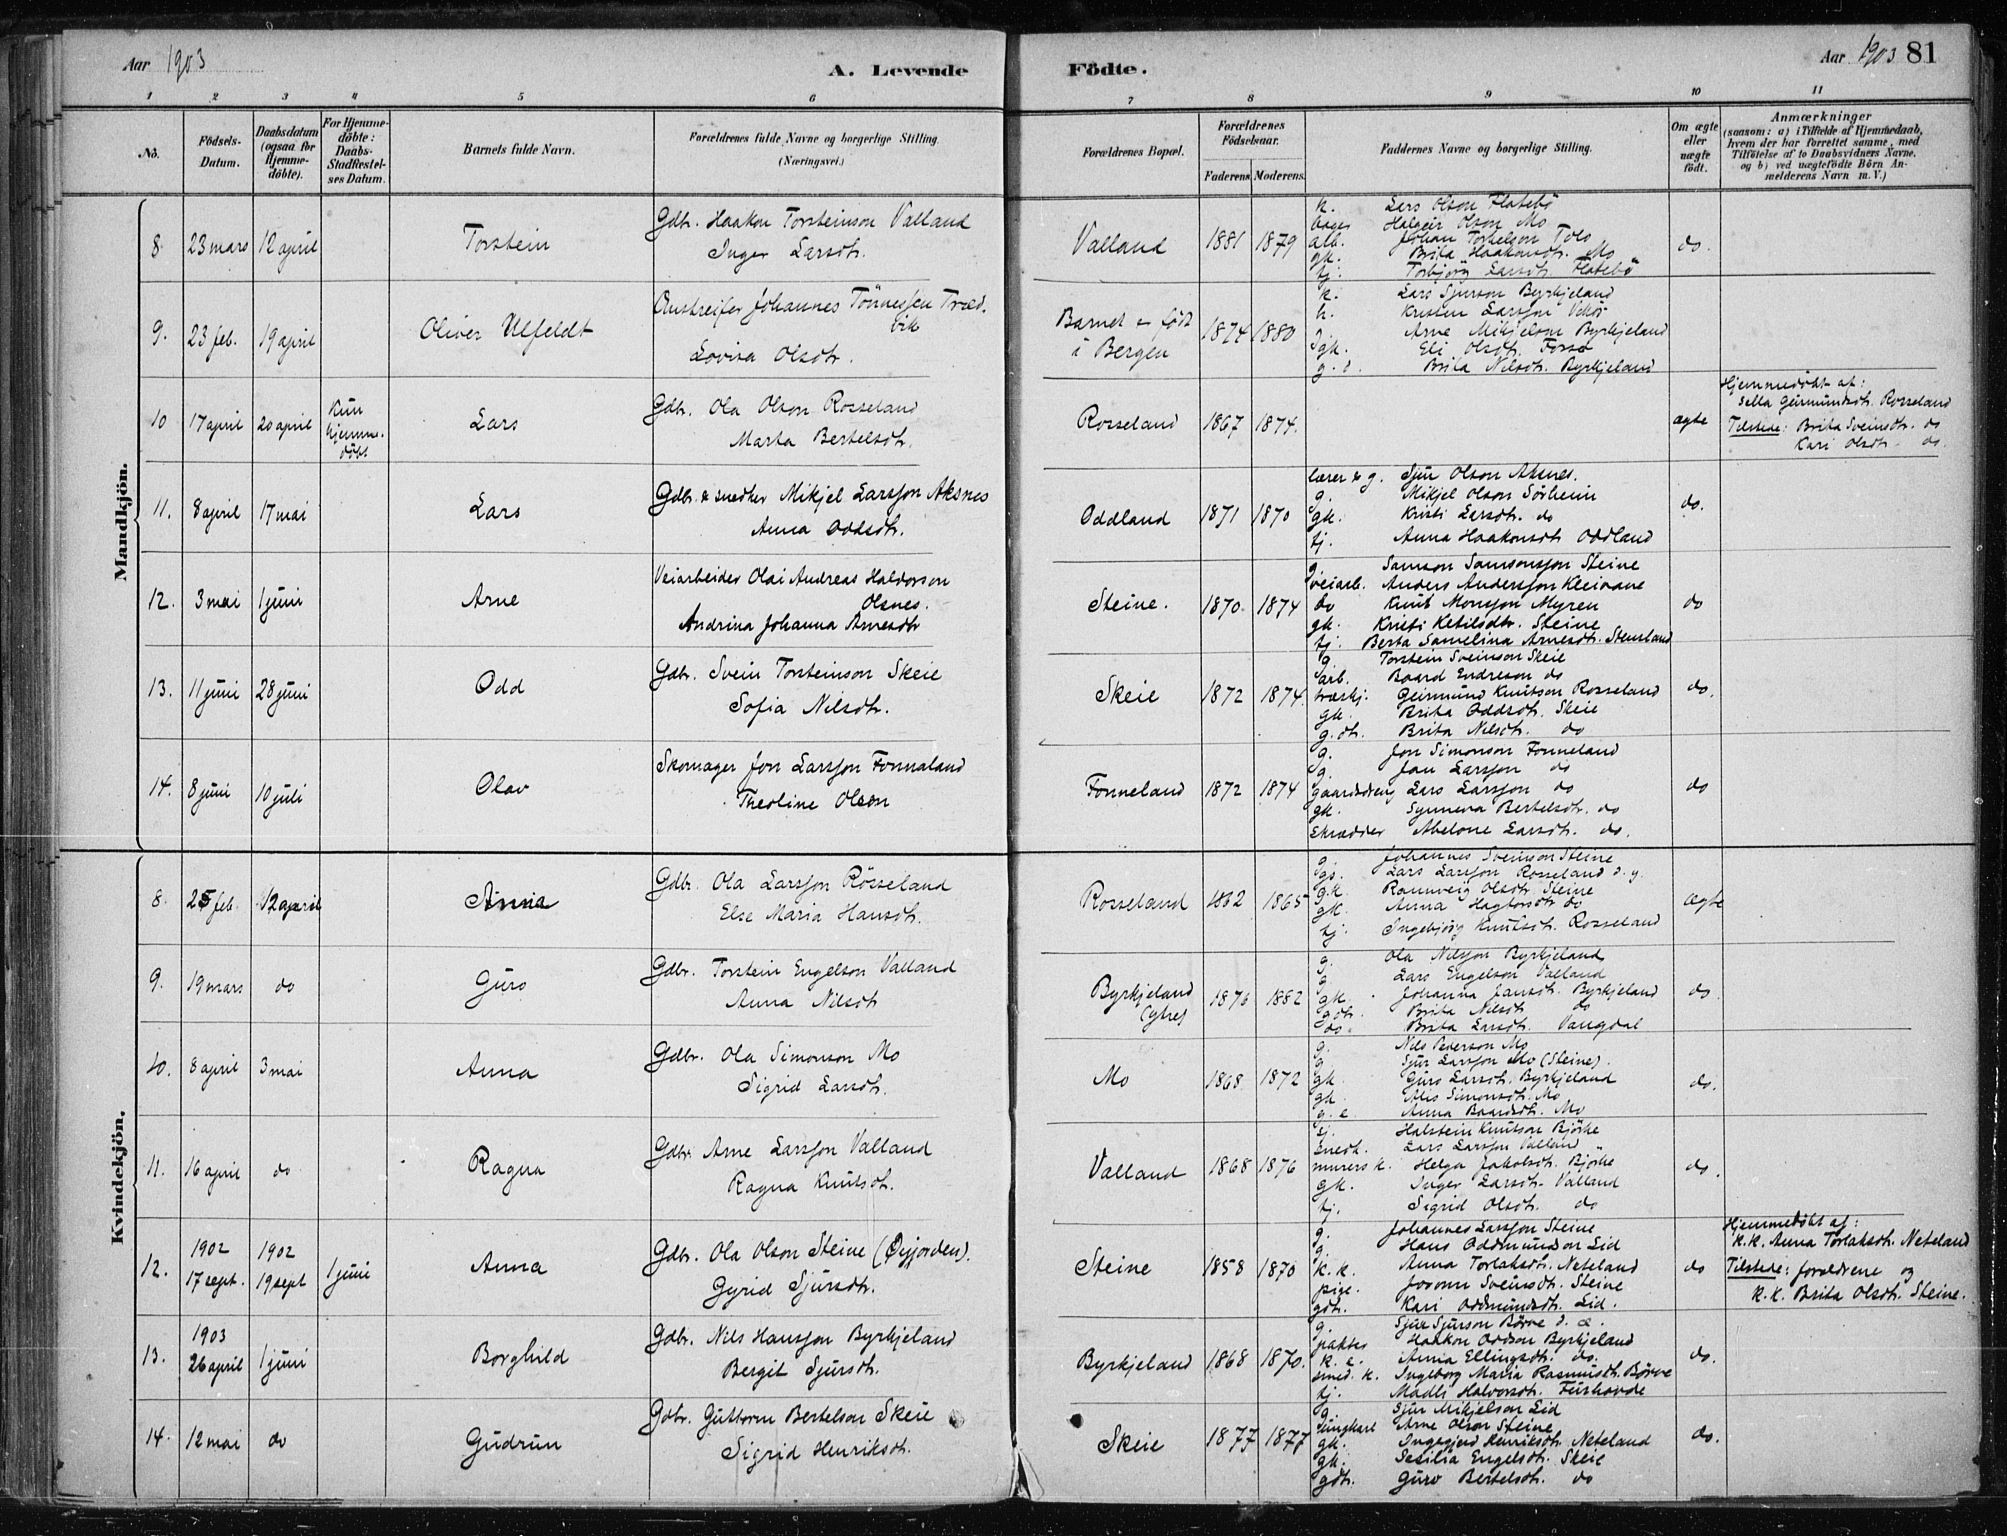 Aar 1903
A. Levende
Födte.
Aar 1903 81
1 2 3 4 5 6 7 8 9 10 11
No.
Födsels-Datum.
Daabsdatum (ogsaa for Hjemme-döbte).
For Hjemme-döbte: Daabs-Stadfæstel-ses Datum.
Barnets fulde Navn.
Forældrenes fulde Navne og borgerlige Stilling (Næringsvei.)
Forældrenes Bopæl.
Forældrenes Födselsaar.
Faderens. Moderens.
Faddernes Navne og borgerlige Stilling.
Om ægte eller uægte födt.
Anmærkninger
(saasom: a) i Tilfælde af Hjemmedaab, hvem der har forrettet samme, med Tilföielse af to Daabsvidners Navne, og b) ved uægtefödte Börn An-melderens Navn m. V.)
Mandkjön.
8. 23 mars 12 april Torstein
Gdbr. Haakon Torsteinson Valland
Inger Larsdtr.
Valland 1881 1879
k. Lars Olson Flatebö
Halgeir Olson Mo
arb. Johan Torkelson Tolo
gk. Brita Haakonsdtr. Mo
tj. Torbjörg Larsdtr. Flatebö
do.
9. 23 feb. 19 april Oliver Ulfeldt
Johannes Tönnessen Træd-vik
Lovisa Olsdtr.
Barnet er född i Bergen 1874 1880
k. Lars Sjurson Byrkjeland
h. Kristen Larsson
Arne Mikjelson Byrkjeland
gk. Eli Olsdtr. Fosse
g. d. Brita Nilsdtr. Byrkjeland
10 17 april 20 april Kun hjemme-döbt Lars
Gdbr. Ola Olson Rosseland
Marta Bertelsdtr.
Rosseland 1867 1874.
ægte
Hjemmedöbt af:
Sella Geirmundsdtr. Rosseland
Tilstede: Brita Sveinsdtr. do
Kari Olsdtr. do.
11. 8 april 17 mai Lars
Gdbr. & snedker Mikjel Larsson Aksnes
Anna Oddsdtr.
Oddland 1871 1870
lærer & g. Sjur Olson Aksnes.
g. Mikjel Olson Sörheim
gk. Kristi Larsdtr. do
tj. Anna Haakonsdtr Oddland
do.
12. 3 mai 1 juni Arne
Veiarbeider Olai Andreas Haldorson Olsnes.
Andrina Johanna Arnesdtr
Steine. 1870. 1874
g. Samson Samsonson Steine
veiarb. Anders Andersson Kleivane
do Knut Monsson Myren
gk. Kristi Ketilsdtr. Steine
tj. Berta Samelina Arnesdtr. Stensland
do
13. 11 juni 28 juni Odd
Gdbr. Svein Torsteinson Skeie
Sofia Nilsdtr.
Skeie 1872 1874.
g. Torstein Sveinson Skeie
arb. Baard Endreson do
Geirmund Knutson Rosseland
gk. Brita Oddsdtr. Skeie
g. dt. Brita Nilsdtr. do
do.
14. 8 juni 10 juli Olav
Skomager Jon Larsson Fonnaland
Theoline Olson
Fonneland 1872 1874
g. Jon Simonson Fonneland
g. Jon Larsson do
gaardsdreng Lars Larsson do
gk. Synneva Bertelsdtr. do
Skrædder Abelone Larsdtr. do.
do
Kvindekjön.
8. 25 feb. 12 april Anna
Gdbr. Ola Larsson Rosseland
Else Maria Hansdtr.
Rosseland 1862 1865
g. Johannes Sveinson Steine
gs. Lars Larsson Rosseland d. y.
g.k. Rannveig Olsdtr. Steine
gk. Anna Hagtorsdtr do
tj. Ingebjörg Knutsdtr. Rosseland
ægte
9. 19 mars do Guro
Gdbr. Torstein Engelson Valland
Anna Nilsdtr
Byrkjeland (ytre) 1876 1882
g. Ola Nilsson Byrkjeland
g Lars Engelson Valland
gk. Johanna Jansdtr. Byrkjeland
gdtr. Brita Nilsdtr do
do. Brita Larsdtr. Vangdal
do.
10. 8 april 3 mai Anna
Gdbr. Ola Simonson Mo
Sigrid Larsdtr.
Mo 1868 1872
g. Nils Pederson Mo
g Sjur Larsson Mo (Steine).
gk. Guro Larsdtr. Byrkjeland
gk. Alis Simonsdtr. Mo
g. e. Anna Baardsdtr. Mo
do.
11. 16 april do Ragna
Gdbr. Arne Larsson Valland
Ragna Knutsdtr.
Valland 1868 1876
ej. Halstein Knutson Björke
Snedk. Lars Larsson Valland
murers k. Helga Jakobsdtr. Bjöke
gk. Inger Larsdtr. Valland
tj. Sigrid Olsdtr. do
do.
12. 1902 17 sept. 1902 19 sept 1 juni Anna
Gdbr. Ola Olson Steine (Öyjorden).
Gyrid Sjursdtr.
Steine 1858 1870
g. Johannes Larsson Steine
g. Hans Oddmundson Lid
k. k. Anna Torlaksdtr. Neteland
pige. Jorunn Sveinsdtr. Steine
gdt. Kari Oddmundsdtr. Lid.
do
Hjemmedöbt af:
k.k. Anna Torlaksdtr. Neteland
Tilstede: forældrene og
k.k. Brita Olsdtr. Steine.
13. 1903 26 april 1 juni Borghild
Gdbr. Nils Hansson Byrkjeland
Bergit Sjursdtr.
Byrkjeland 1868 1870.
g. Sjur Sjurson Börve d. æ.
Haakon Oddson Byrkjeland
k. e. Anna Ellingsdtr. do.
smed. k. Ingeborg Maria Rasmusdtr. Börve
tj. Madli Halvorsdtr.
do.
14. 12 mai do Gudrun
Gdbr. Guttorm Bertelson Skeie
Sigrid Henriksdtr.
Skeie 1877 1877
g. Sjur Mikjelson Lid
ungkarl Arne Olson Steine
gk. Ingegjerd Henriksdtr. Neteland
gk. Sesilia Engelsdtr. Skeie
gdtr. Guro Bertelsdtr. do
do.